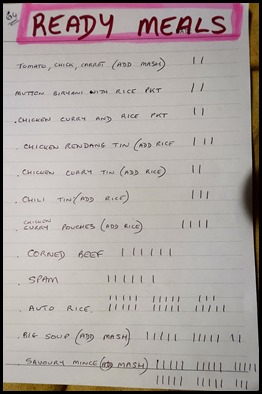 READY MEALS
TOMATO, CHICK, CARRET (ADD MASH) ||
MUTTON BIRYANI WITH RICE PKT ||
. CHICKEN CURRY AND RICE PKT ||
. CHICKEN RENDANG TIN (ADD RICE |||
. CHICKEN CURRY TIN (ADD RICE) ||
. CHILI TIN (ADD RICE) |||
. CHICKEN CURRY POUCHES (ADD RICE) ||||
. CORNED BEEF ||||||
. SPAM ||||||
. AUTO RICE.
. BIG SOUP (ADD MASH)
SAVOURY MINCE (ADD MASH)